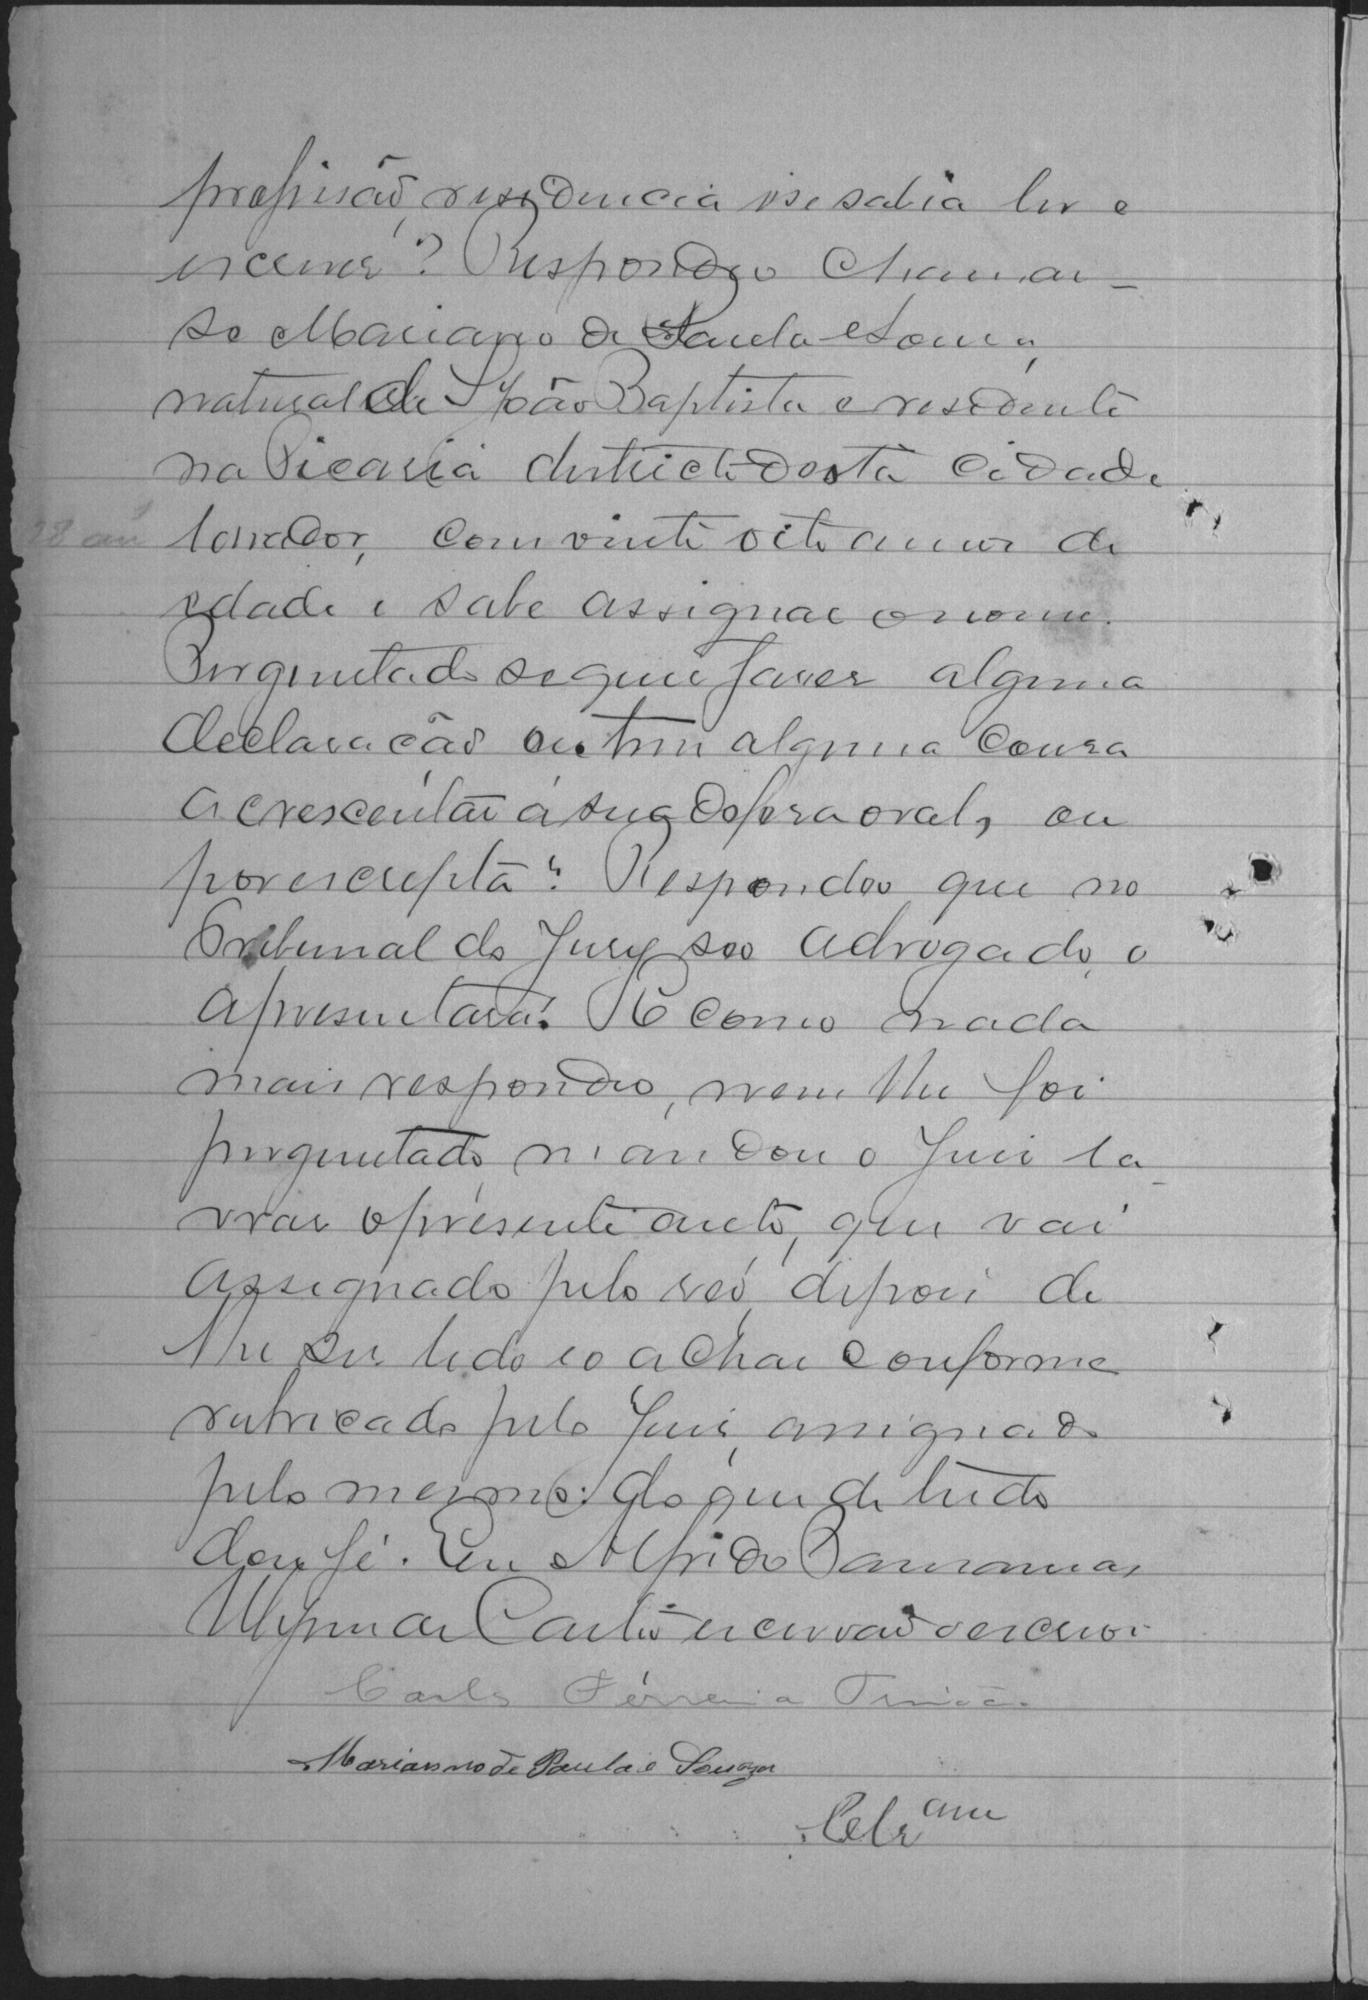 profissão, residencia e se sabia ler e
escrever? Respondeo Chamar-
se Mariano de Paula e Souza,
natural de S João Baptista e residente
na Picaria districto desta Cidade
28 an lavrador, com vinte oito annos de
edade e sabe assignar o nome.
Perguntado se quer faser alguma
declaração ou tem alguma cousa
acrescentar á sua defesa oral, ou
por escripta? Respondeo que no
Tribunal do Jury seo advogado o
apresentará. E como nada
mais respondeo, nem lhe foi
perguntado, mandou o Juiz la-
vrar o presente auto, que vai
assignado pelo reó, depois de
lhe ser lido e o achar conforme
rubricado pelo Juiz, assignado
pelo mesmo: do que de tudo
dou fé. Eu Alfrido
Castro escrivão o escrevi.
Carlos Ferreira
Marianno de Paula e Souza